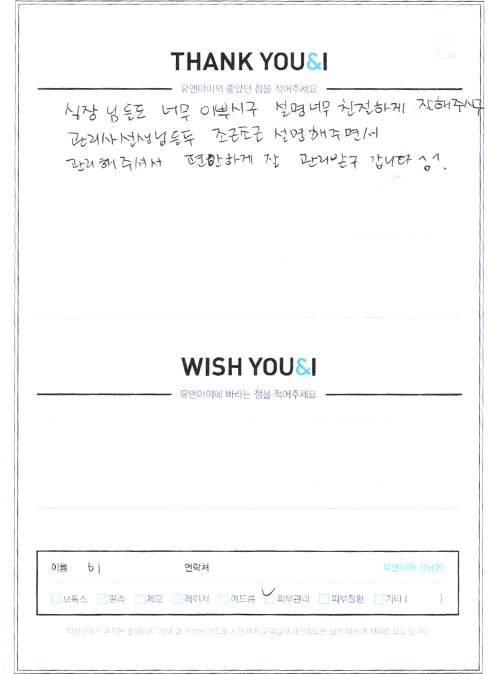 THANK YOU&I
유앤아이의 좋았던 점을 적어주세요
실장님들도 너무 이쁘시구 설명너무 친절하게 잘해주시구
관리사선생님들두 조근조근 설명해주면서
관리해주셔서 편안하게 잘 관리받구 갑니다 ^^.
WISH YOU&I
유앤아이에 바라는 점을 적어주세요
이름 연락처 유앤아이 강남점
보톡스 필러 제모 레이저 여드름 피부관리 피부질환 기타 ( )